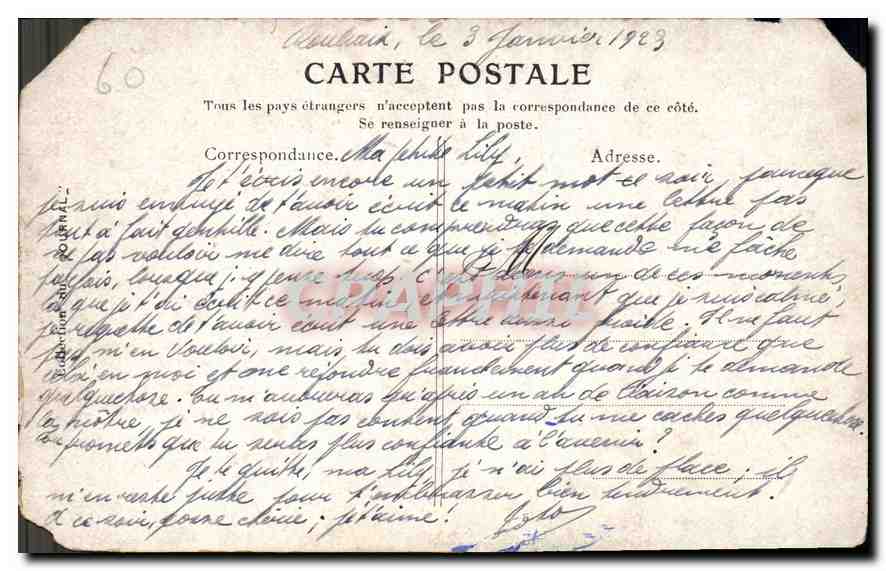 Roubaix, le 3 Janvier 1923
60
CARTE POSTALE
Tous les pays étrangers n'acceptent pas la correspondance de ce côté.
Se renseigner à la poste.
Correspondance. Ma petite Lily, Adresse.
Je t'écris encore un petit mot ce soir, parceque
je suis ennuyé de t'avoir écrit ce matin une lettre pas
tout à fait gentille. Mais tu comprendras que cette façon de
ne pas vouloir me dire tout ce que je te demande me fâche
parfois, lorsque j'y pense un de ces moments,
que je t'ai écrit ce matin et maintenant que je suis calmé,
je regrette de t'avoir écrit une lettre aussi froide. Il ne faut
pas m'en vouloir, mais tu dois avoir plus de confiance que
cela en moi et me répondre franchement quand je te demande
quelquechose. Tu m'avoueras qu'après un an de liaison comme
la nôtre, je ne sois pas content quand tu me caches quelquechose.
promets que tu seras plus confiante à l'avenir?
Je te quitte, ma Lily, je n'ai plus de place; il
m'en reste juste pour t'embrasser bien tendrement.
A ce soir, chérie; je t'aime!
Collection du JOURNAL
CPAPHIL